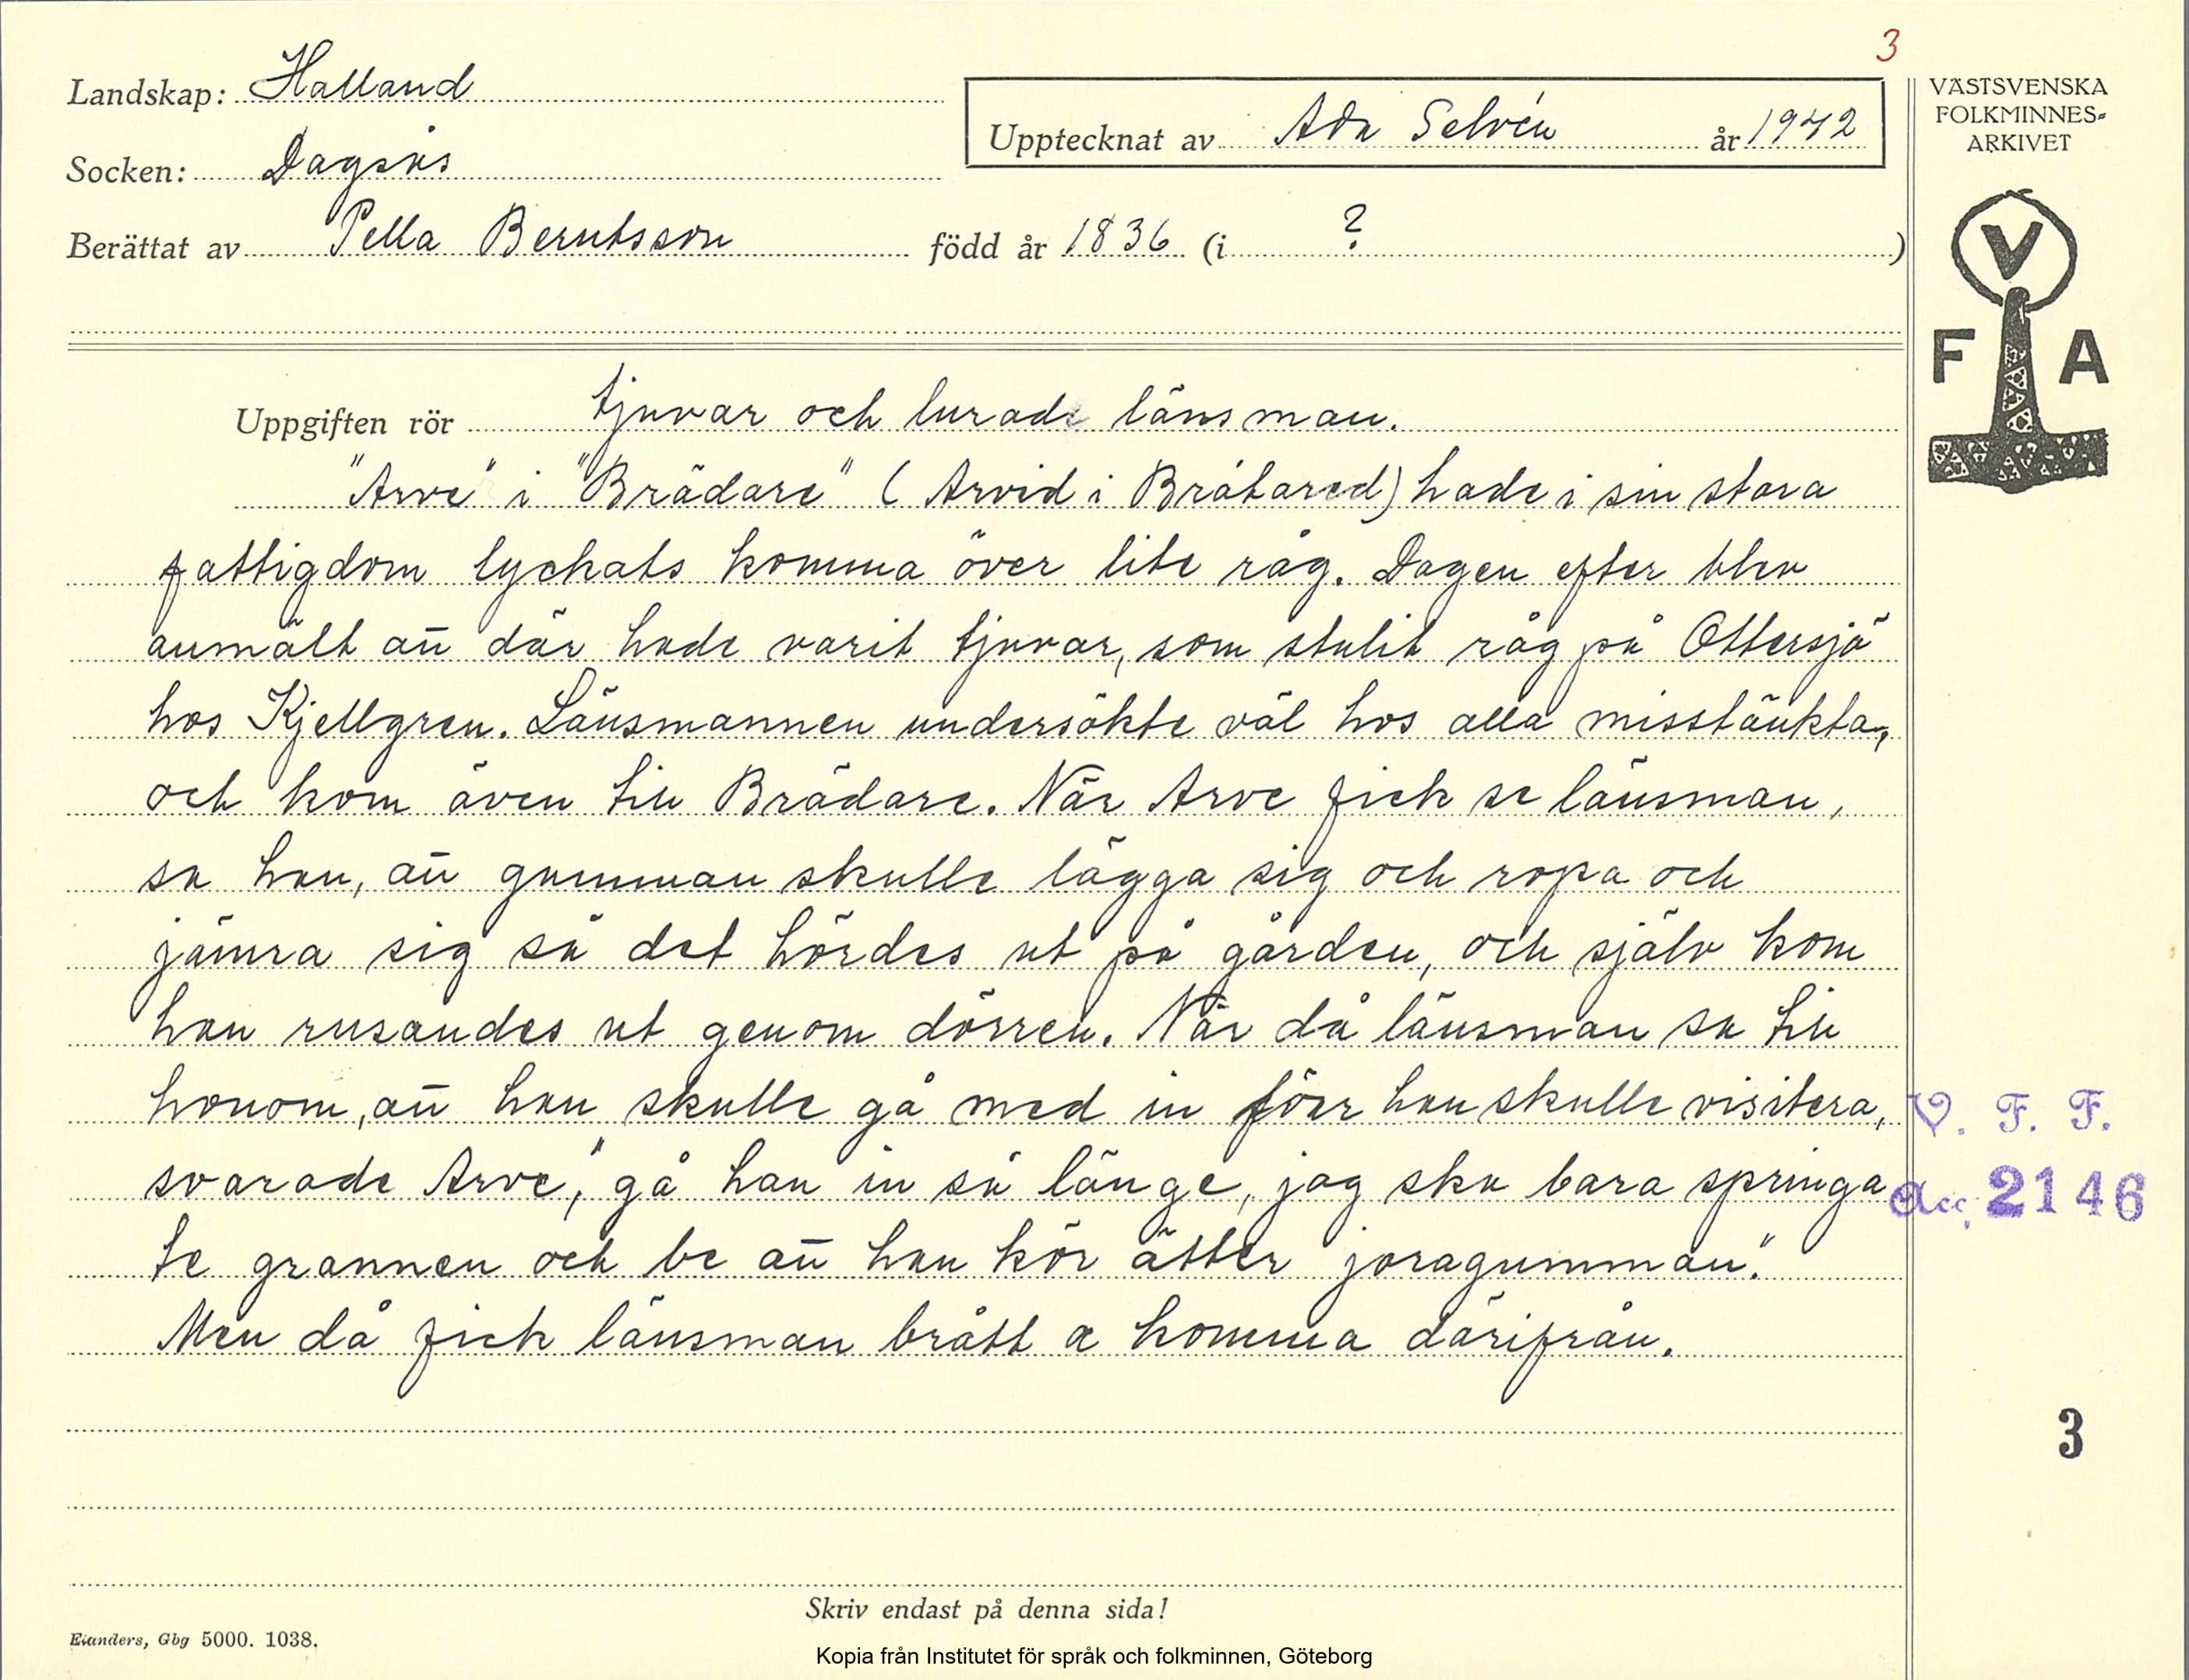 3
Landskap: Halland
Upptecknat av Ada Selvén år 1942
VÄSTSVENSKA
FOLKMINNES-
ARKIVET
Socken: Dagsås
Berättat av Pella Berntsson född år 1836 (i ? )
V
F A
Uppgiften rör tjuvar och lurade länsman.
"Arve" i "Brädare" (Arvid i Bråtared) hade i sin stora
fattigdom lyckats komma över lite råg. Dagen efter blev
anmält att där hade varit tjuvar, som stulit råg på Ottersjö
hos Kjellgren. Länsmannen undersökte väl hos alla misstänkta,
och kom även till Brädare. När Arve fick se länsman,
sa han, att gumman skulle lägga sig och ropa och
jämra sig så det hördes ut på gården, och själv kom
han rusandes ut genom dörren. När då länsman sa till
honom, att han skulle gå med in för han skulle visitera,
svarade Arve, "gå han in så länge, jag ska bara springa
te grannen och be att han kör ätter joragumman."
Men då fick länsman brått a komma därifrån.
V. F. F.
Acc. 2146
3
Skriv endast på denna sida!
Elanders, Gbg 5000. 1038.
Kopia från Institutet för språk och folkminnen, Göteborg